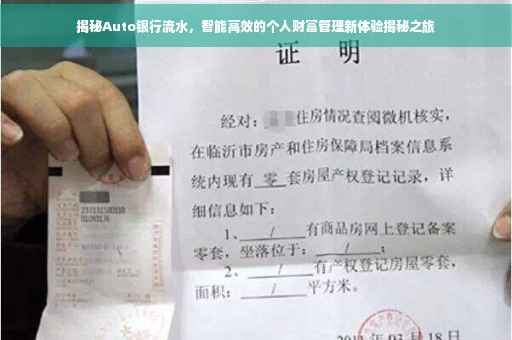 揭秘Auto银行流水，智能高效的个人财富管理新体验揭秘之旅
证 明
经对：住房情况查阅微机核实，
在临沂市房产和住房保障局档案信息系
统内现有 零 套房屋产权登记记录，详
细信息如下：
1、 / 有商品房网上登记备案
零套，坐落位于： / ；
2、 / 有产权登记房屋零套，
面积： / 平方米。
月18日